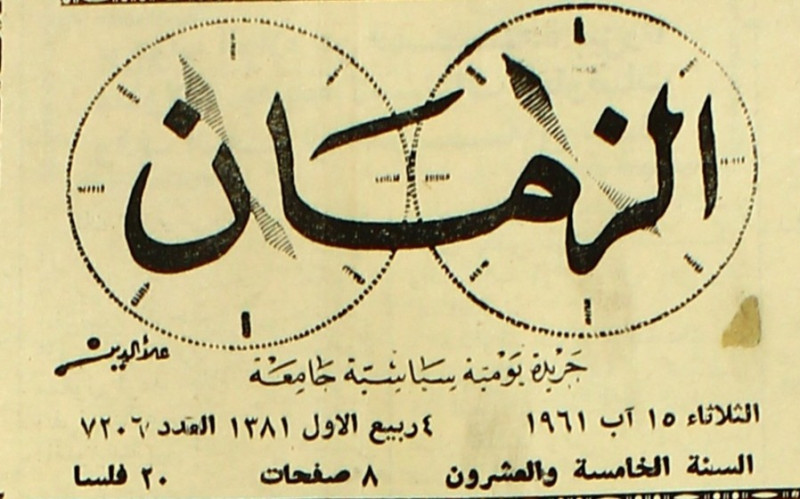 الزمان
علاءالدين
جريدة يومية سياسية جامعة
الثلاثاء ١٥ آب ١٩٦١ ٤ ربيع الاول ١٣٨١ العدد ٧٢٠٦
السنة الخامسة والعشرون ٨ صفحات ٢٠ فلسا